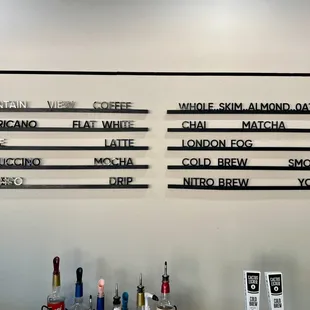 NTAIN VIEW COFFEE
RICANO FLAT WHITE
E LATTE
UCCINO MOCHA
ASSO DRIP
WHOLE..SKIM..ALMOND..OA
CHAI MATCHA
LONDON FOG
COLD BREW SMO
NITRO BREW YO
COLD
BREW
COLD
BREW